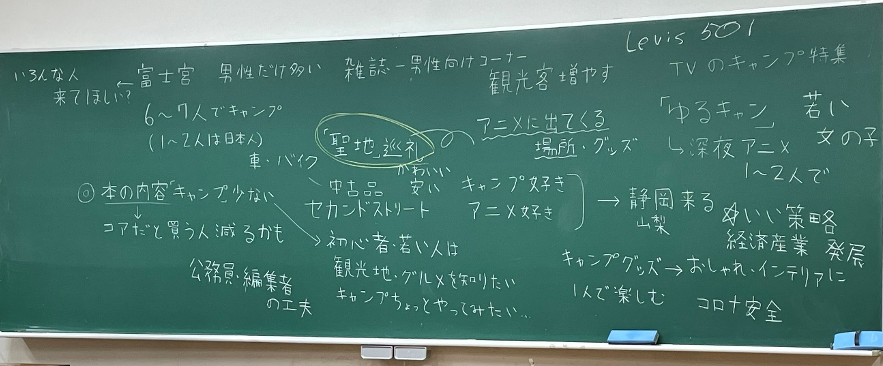 Levis 501
いろんな人
来てほしい?
← 富士宮 男性だけ多い 雑誌-男性向けコーナー
観光客増やす
TVのキャンプ特集
6~7人でキャンプ
(1~2人は日本人)
車・バイク
「聖地」巡礼
アニメに出てくる
場所・グッズ
「ゆるキャン」 若い
女の子
↳深夜アニメ
1~2人で
中古品
かわいい
安い
セカンドストリート
キャンプ好き
アニメ好き
→ 静岡来る
山梨
☆いい策略
経済産業 発展
◎ 本の内容「キャンプ」少ない
↓
コアだと買う人減るかも
公務員・編集者
の工夫
初心者・若い人は
観光地・グルメを知りたい
キャンプちょっとやってみたい…
キャンプグッズ→おしゃれ・インテリアに
1人で楽しむ コロナ安全